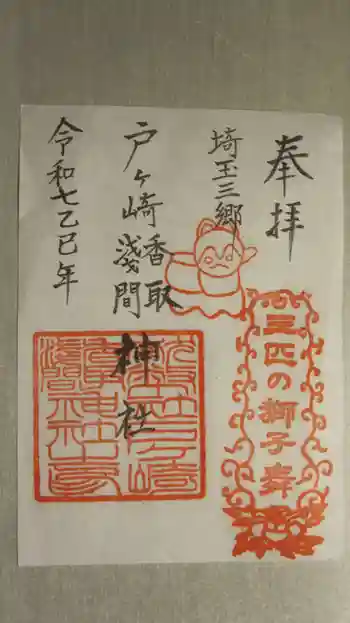 奉拝
埼玉三郷
三匹の獅子舞
戸ヶ崎香取
浅間
神社
令和七乙巳年